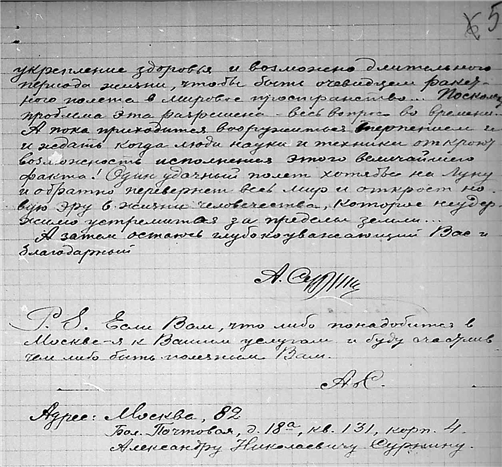 5
укрепление здоровья и возможно длительного
периода жизни, чтобы быть очевидцем ракет-
ного полета в мировое пространство... Поскольку
проблема эта разрешена - весь вопрос во времени.
А пока приходится вооружиться терпением и
и ждать когда люди науки и техники откроют
возможность исполнения этого величайшего
факта! Один удачный полет хотя бы на Луну
и обратно перевернет весь мир и откроет но-
вую эру в жизни человечества, которое неудер-
жимо устремится за пределы земли...
А затем остаюсь глубокоуважающий Вас и
благодарный
А.
P. S. Если Вам, что либо понадобится в
Москве-я к Вашим услугам и буду счастлив
чем либо быть полезным Вам.
А.С.
Адрес: Москва, 82
Бол. Почтовая, д. 18а, кв. 131, корп. 4.
Александру Николаевичу